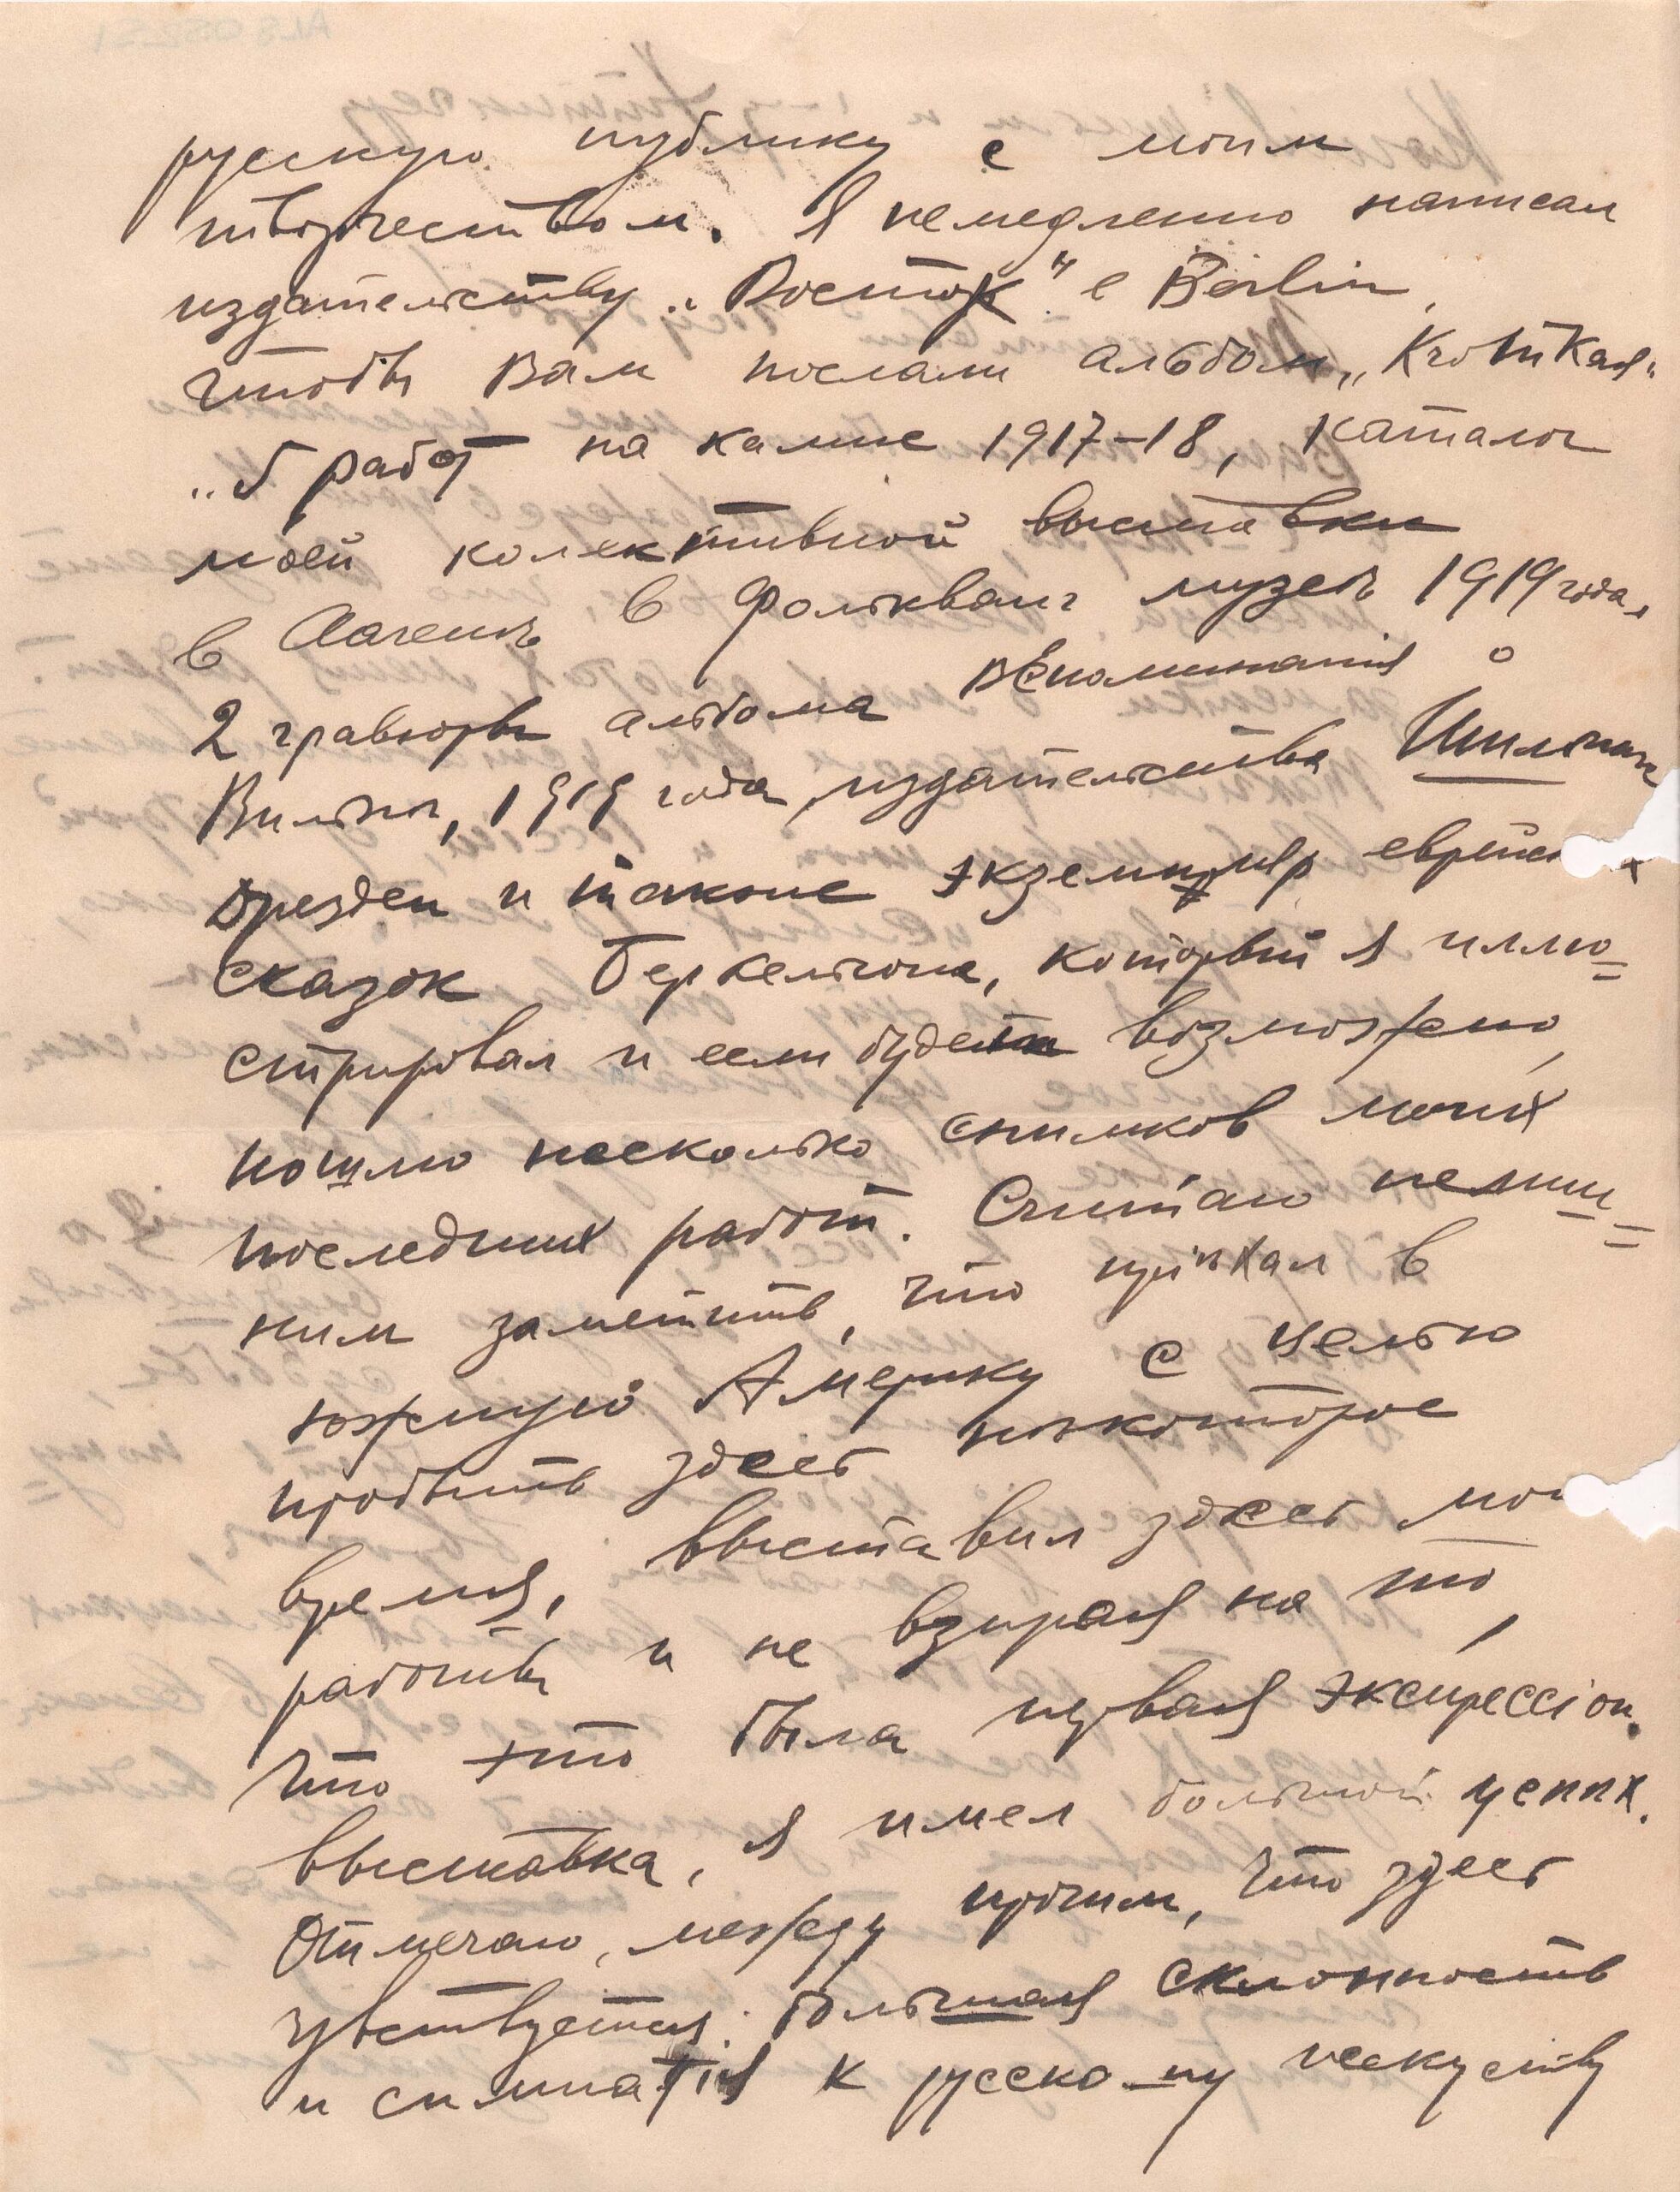 русскую публику с моим
творчеством. Я немедленно написал
издательству „Восток" в Berlin,
чтобы Вам послали альбом „Кроткая"
„5 работ на камне 1917-18, каталог
моей колективной выставки
в Ааченъ в Фолькванг музеъ 1919 года,
2 гравюры альбома вспоминанія о
Вильнъ, 1919 года, издательства
Dresden и также экземпляр
сказок, который я иллю=
стрировал и если будет возможно,
пошлю несколько снимков моих
последних работ. Считаю нелиш=
ним заметить, что пріихал в
южную Америку с целью
пробыть здесь нъкоторое
время, выставил здесь мои
работы и не взирая на то,
что это была первая экспрессіон.
выставка, я имел большой успих.
Отмечаю, между прочим, что здесь
чувствуется большая склонность
и симпатія к русскому искуству